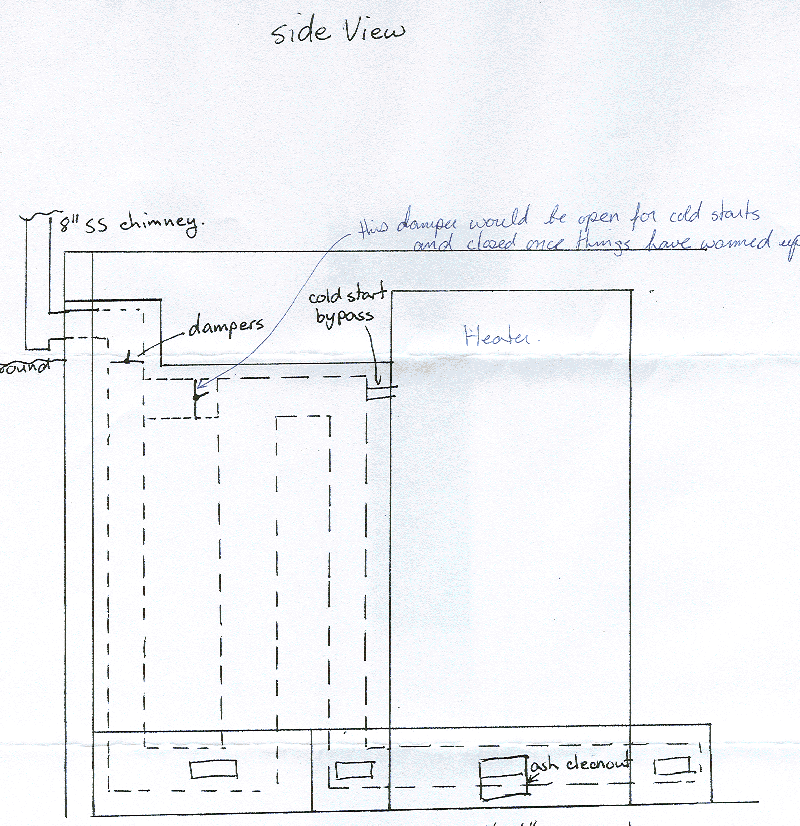 side View
8" SS chimney.
this damper would be open for cold starts
and closed once things have warmed up
cold start
bypass
dampers
Heater.
round
ash cleanout